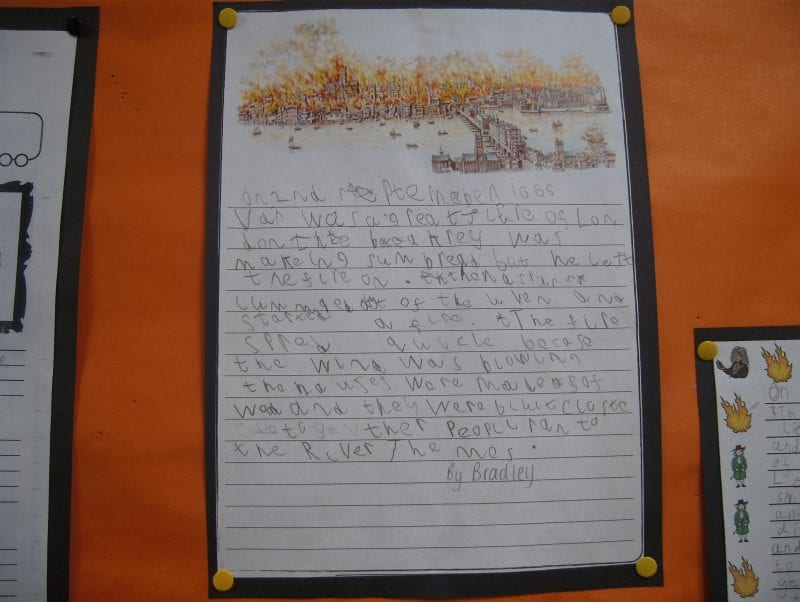 On 2nd septemeber 1666
Var was a great fire of Lon
don the bakrey was
makeing sum bread but he left
the fire on. then a spark
cummd out of the uven and
started a fire. The fire
spred quicle becase
the wind was blowing
the houses were made of
wood and they were bilt close
together People ran to
the River Themes.
By Bradley
On
and
of
and
di
and
to